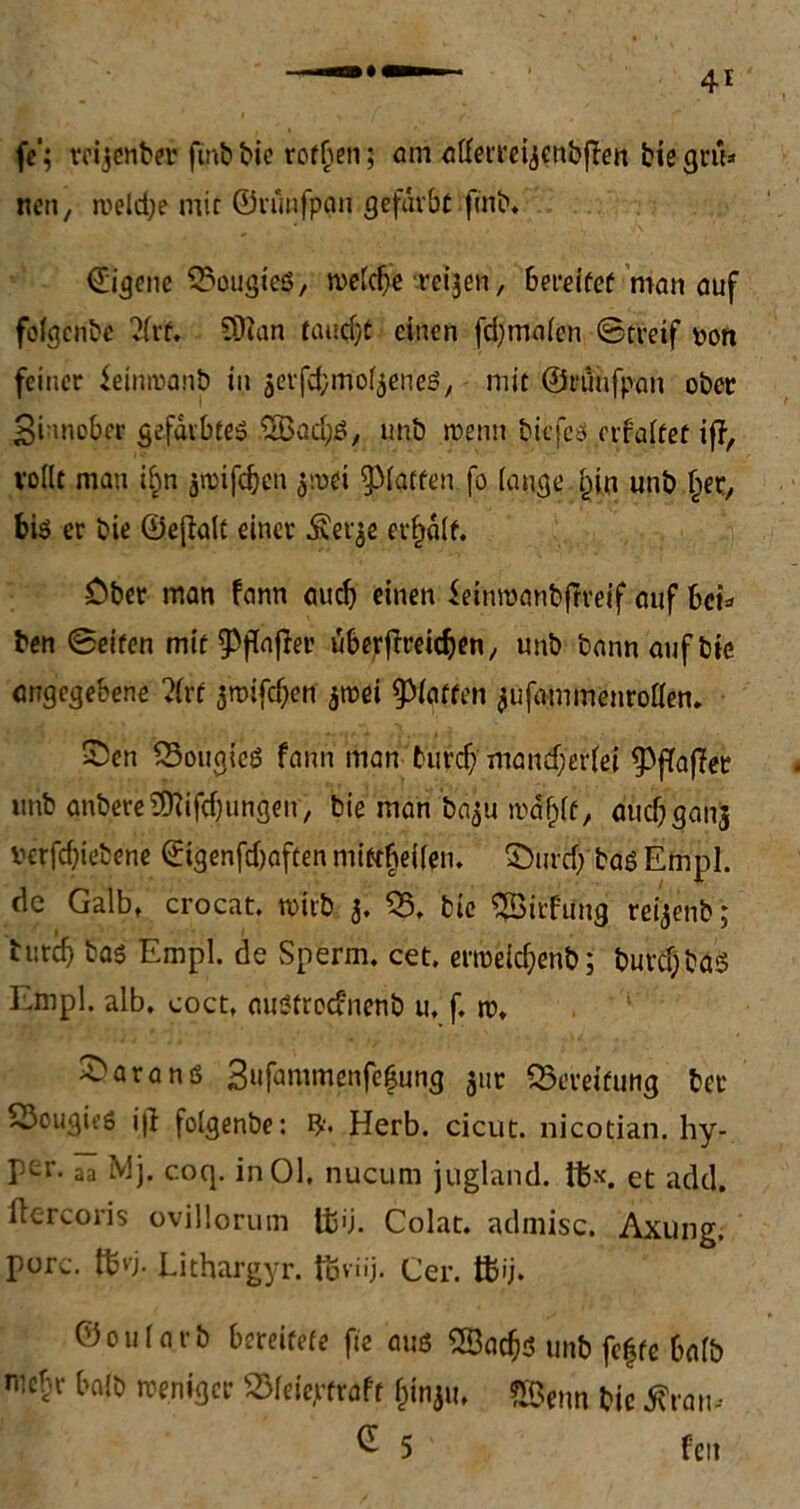 41
ſe; reizender ſind die rothen; am allerreizendſten die grü-
nen, welche mit Grünſpan gefärbt ſind.
Eigene Bougies, welche reizen, bereitet man auf
folgende Art. Man taucht einen ſchmalen Streif von
feiner Leinwand in zerſchmolzenes, mit Grünſpan oder
Zinnober gefärbtes Wachs, und wenn dieſes erkaltet iſt,
rollt man ihn zwiſchen zwei Platten ſo lange hin und her,
bis er die Geſtalt einer Kerze erhält.
Oder man kann auch einen Leinwandſtreif auf bei-
den Seiten mit Pflaſter überſtreichen, und dann auf die
angegebene Art zwiſchen zwei Platten zuſammenrollen.
Den Bougies kann man durch mancherlei Pflaſter
und andere Miſchungen, die man dazu wählt, auch ganz
verſchiedene Eigenſchaften mittheilen. Durch das Empl.
de Galb. crocat. wird z. B. die Wirkung reizend;
durch das Empl. de Sperm. cet. erweichend; durch das
Empl. alb. coct. austrocknend u. ſ. w.
Darans Zuſammenſetzung zur Bereitung der
Bougies iſt folgende: ℞. Herb. cicut. nicotian. hy-
per. aa Mj. coq. in Ol. nucum jugland. ℔x. et add.
ſtercoris ovillorum ℔ij. Colat. admisc. Axung.
porc. ℔vj. Lithargyr. ℔viij. Cer. ℔ij.
Goulard bereitete ſie aus Wachs und ſetzte bald
mehr bald weniger Bleiextrakt hinzu. Wenn die Kran-
E 5 ken